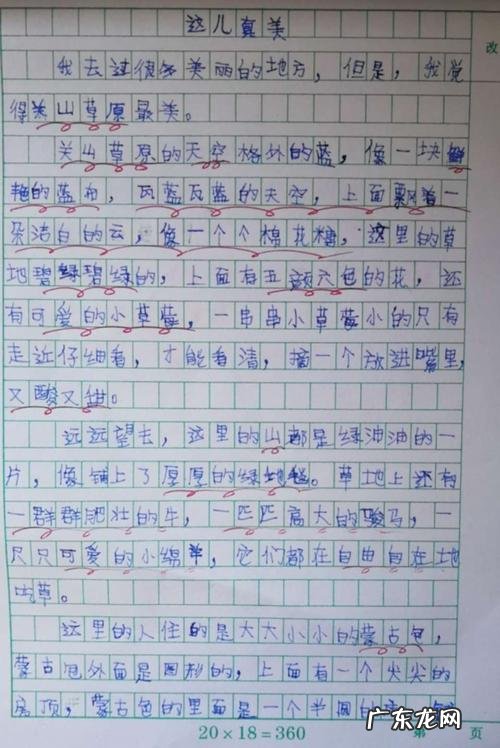 这儿真美
改
我去过很多美丽的地方，但是，我觉
得关山草原最美。
关山草原的天空格外的蓝，像一块鲜
艳的蓝布，瓦蓝瓦蓝的天空，上面飘着一
朵洁白的云，像一个个棉花糖，这里的草
地碧绿碧绿的，上面有五颜六色的花，还
有可爱的小草莓，一串串小草莓小的只有
走近仔细看，才能看清，摘一个放进嘴里，
又酸又甜。
远远望去，这里的山都是绿油油的一
片，像铺上了厚厚的绿地毯。草地上还有
一群群肥壮的牛，一匹匹高大的骏马，一
只只可爱的小绵羊，它们都在自由自在地
吃草。
这里的人住的是大大小小的蒙古包，
蒙古包外面是圆形的，上面有一个尖尖的
房顶，蒙古包的里面是一个半圆的
20×18=360
第 页
广东龙网